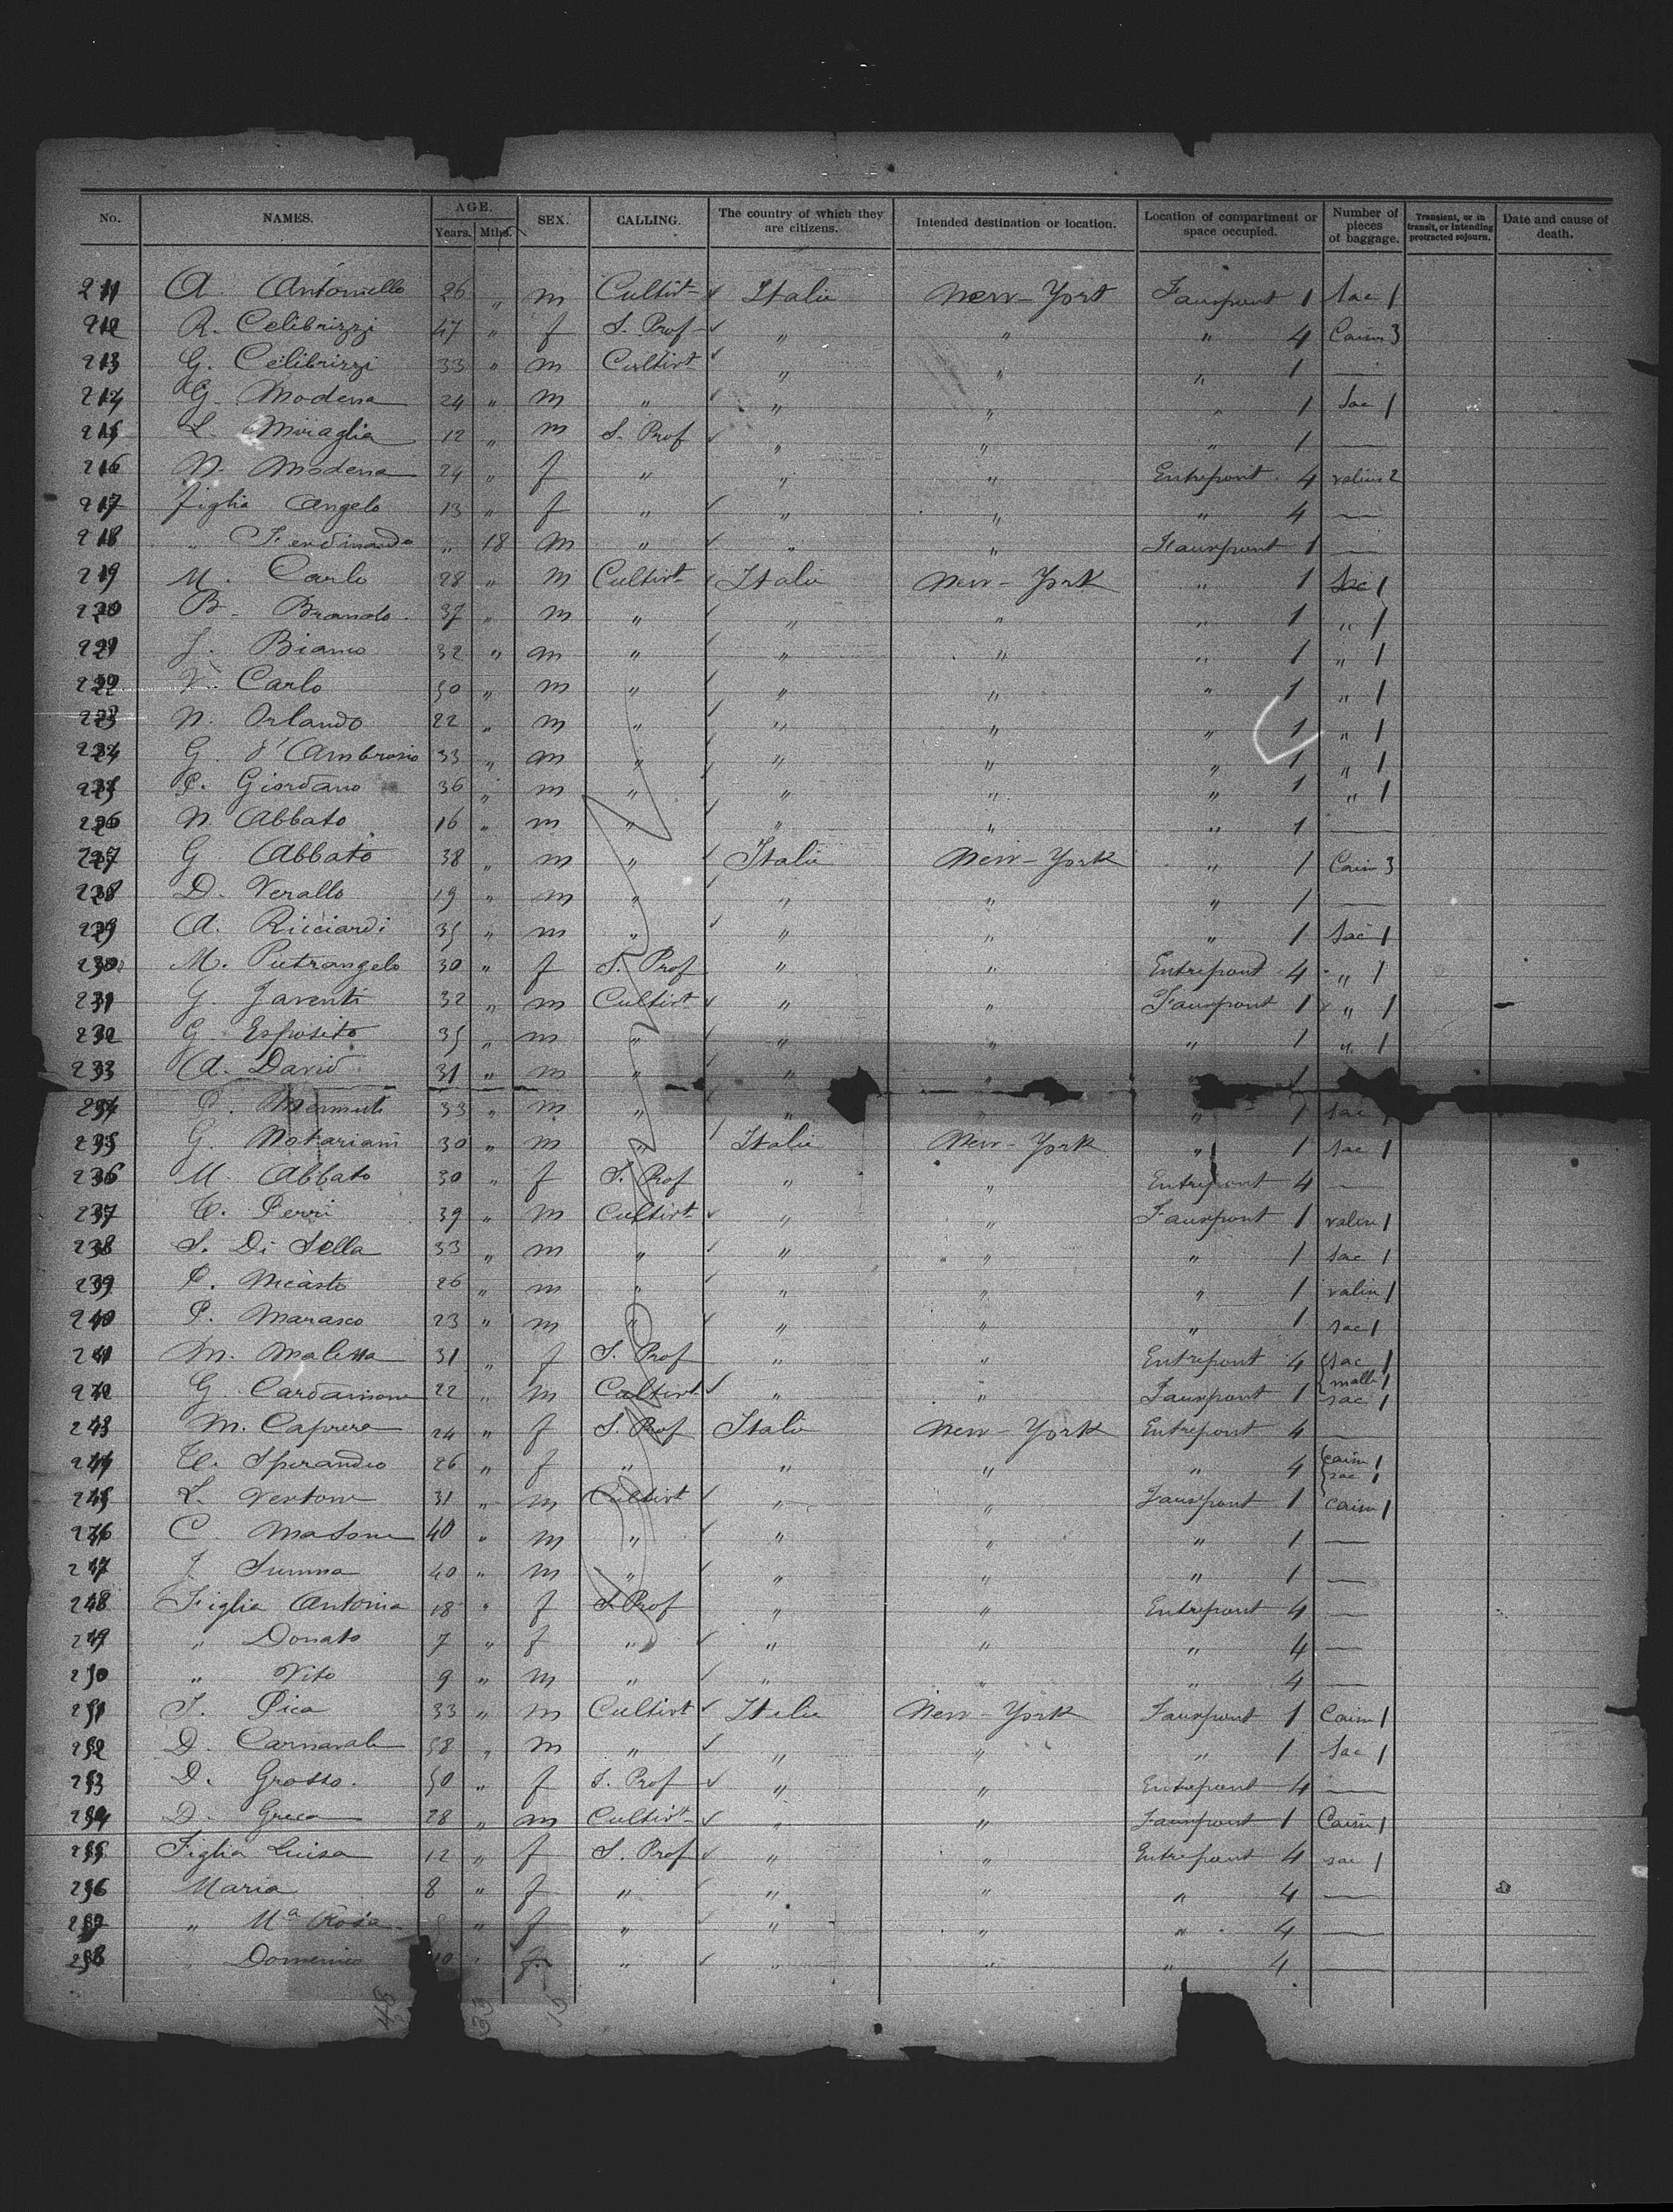 No. NAMES. AGE. Years. Mths. SEX. CALLING. The country of which they are citizens. Intended destination or location. Location of compartment or space occupied. Number of pieces of baggage. Transient, or in transit, or intending protracted sojourn. Date and cause of death.
211 A. Antoniello 26 " m Cultivt Italie New-York Fauxpont 1 Sac 1
212 R. Celibrizzi 47 " f S. Prof " " " 4 Caiss 3
213 G. Celibrizzi 33 " m Cultivt " " " 1 —
214 G. Modena 24 " m " " " " 1 Sac 1
215 L. Miraglia 12 " m S. Prof " " " 1 —
216 N. Modena 24 " f " " " Entrepont 4 valise 2
217 figlia Angelo 13 " f " " " " 4 —
218 " Ferdinando " 18 m " " " Fauxpont 1 —
219 M. Carlo 28 " m Cultivt Italie New-York " 1 Sac 1
220 B. Brando 37 " m " " " " 1 " 1
221 J. Bianco 32 " m " " " " 1 " 1
222 V. Carlo 50 " m " " " " 1 " 1
223 N. Orlando 22 " m " " " " 1 " 1
224 G. d'Ambrosio 33 " m " " " " 1 " 1
225 C. Giordano 36 " m " " " " 1 " 1
226 N. Abbato 16 " m " " " " 1 —
227 G. Abbato 38 " m " Italie New-York " 1 Caiss 3
228 D. Verallo 19 " m " " " " 1 —
229 A. Ricciardi 35 " m " " " " 1 Sac 1
230 M. Pietrangelo 30 " f S. Prof " " Entrepont 4 " 1
231 G. Javenti 32 " m Cultivt " " Fauxpont 1 " 1
232 G. Esposito 35 " m " " " " 1 " 1
233 A. David 31 " m " " " 1
234 33 " m " " " 1 sac
235 G. Notariani 30 " m " Italie New-York " 1 sac 1
236 M. Abbato 30 " f S. Prof " " Entrepont 4 —
237 C. Perri 39 " m Cultivt " " Fauxpont 1 valise 1
238 S. Di Sella 33 " m " " " " 1 sac 1
239 C. 26 " m " " " " 1 valise 1
240 P. Marasco 23 " m " " " " 1 sac 1
241 M. Maletta 31 " f S. Prof " " Entrepont 4 sac 1 malle 1
242 G. Cardamone 22 " m Cultivt " " Fauxpont 1 sac 1
243 M. Caprera 24 " f S. Prof Italie New-York Entrepont 4 —
244 C. Sperandeo 26 " f " " " " 4 caiss 1 sac 1
245 L. Vertone 31 " m Cultivt " " Fauxpont 1 caiss 1
246 C. Masone 40 " m " " " " 1 —
247 J. Summa 40 " m " " " " 1 —
248 Figlia Antonia 18 " f S. Prof " " Entrepont 4 —
249 " Donato 7 " f " " " " 4 —
250 " Vito 9 " m " " " " 4 —
251 F. Pica 33 " m Cultivt Italie New-York Fauxpont 1 Caiss 1
252 D. Carnavale 58 " m " " " " 1 Sac 1
253 D. Grosso 50 " f S. Prof " " Entrepont 4 —
254 D. Greca 28 " m Cultivt " " Fauxpont 1 Caiss 1
255 Figlia Luisa 12 " f S. Prof " " Entrepont 4 sac 1
256 Maria 8 " f " " " " 4 —
257 " Ma Rosa " f " " " " 4 —
258 " Domenico 10 " f " " " " 4 —
48 33 15